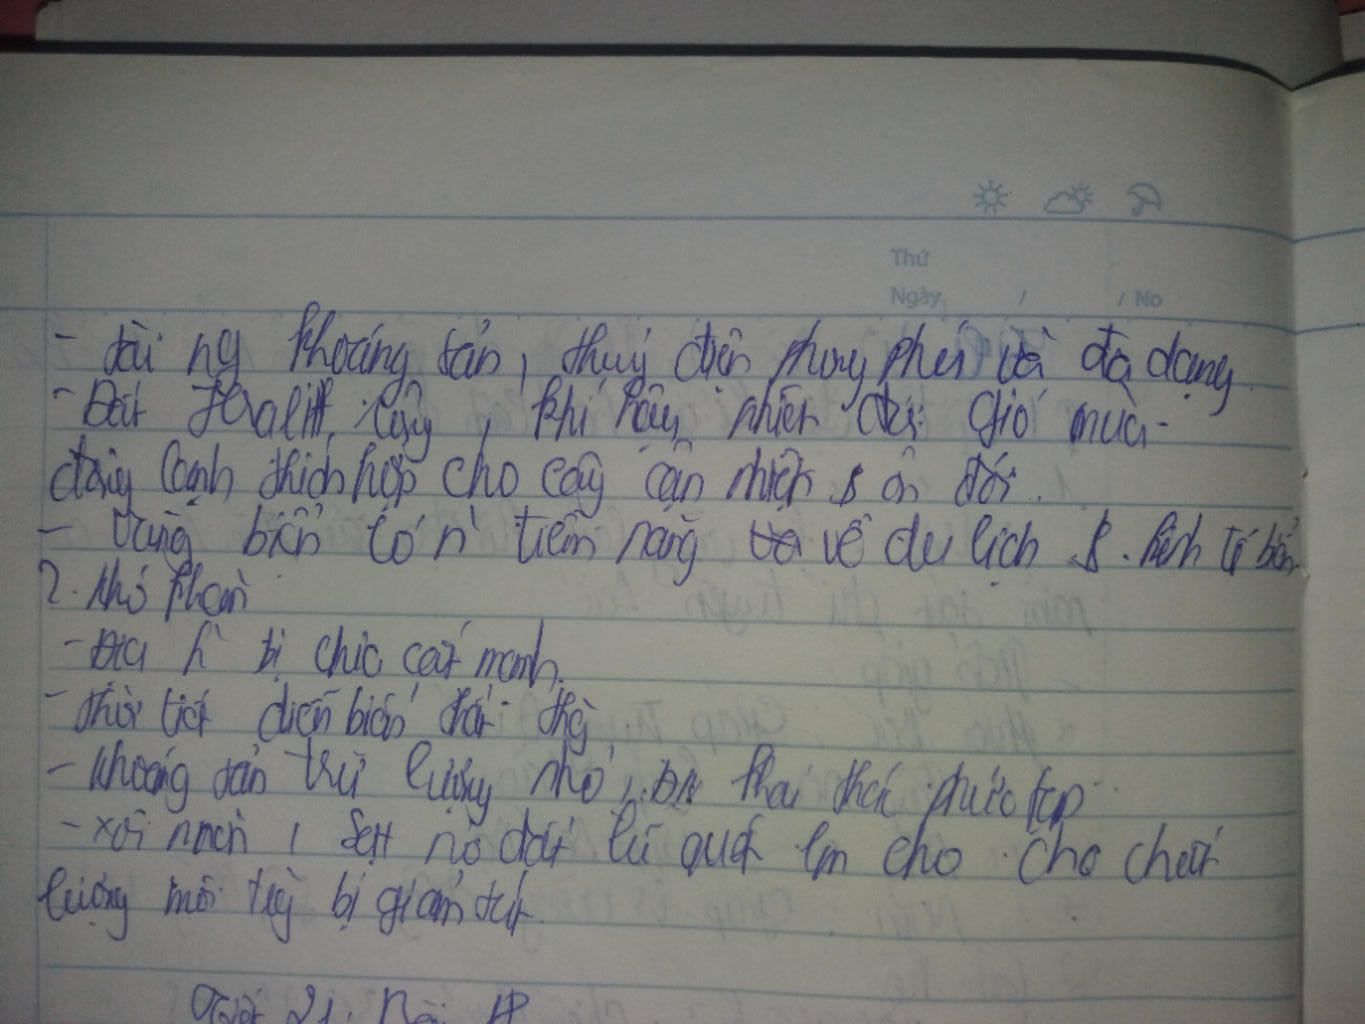 Thứ
Ngày / / No
- tài ng khoáng sản, thuỷ điện phong phú và đa dạng.
- Đất feralit, khí hậu nhiệt đới gió mùa
đông lạnh thích hợp cho cây cận nhiệt & ôn đới.
- Vùng biển có n' tiềm năng về du lịch & kinh tế biển
2. Khó khăn
- Địa h bị chia cắt mạnh.
- thời tiết diễn biến thất thg
- khoáng sản trữ lượng nhỏ, khai thác phức tạp
- xói mòn, sạt nở đất lũ quét lm cho cho chất
lượng môi trg bị giảm sút.
Tiết 21: Bài